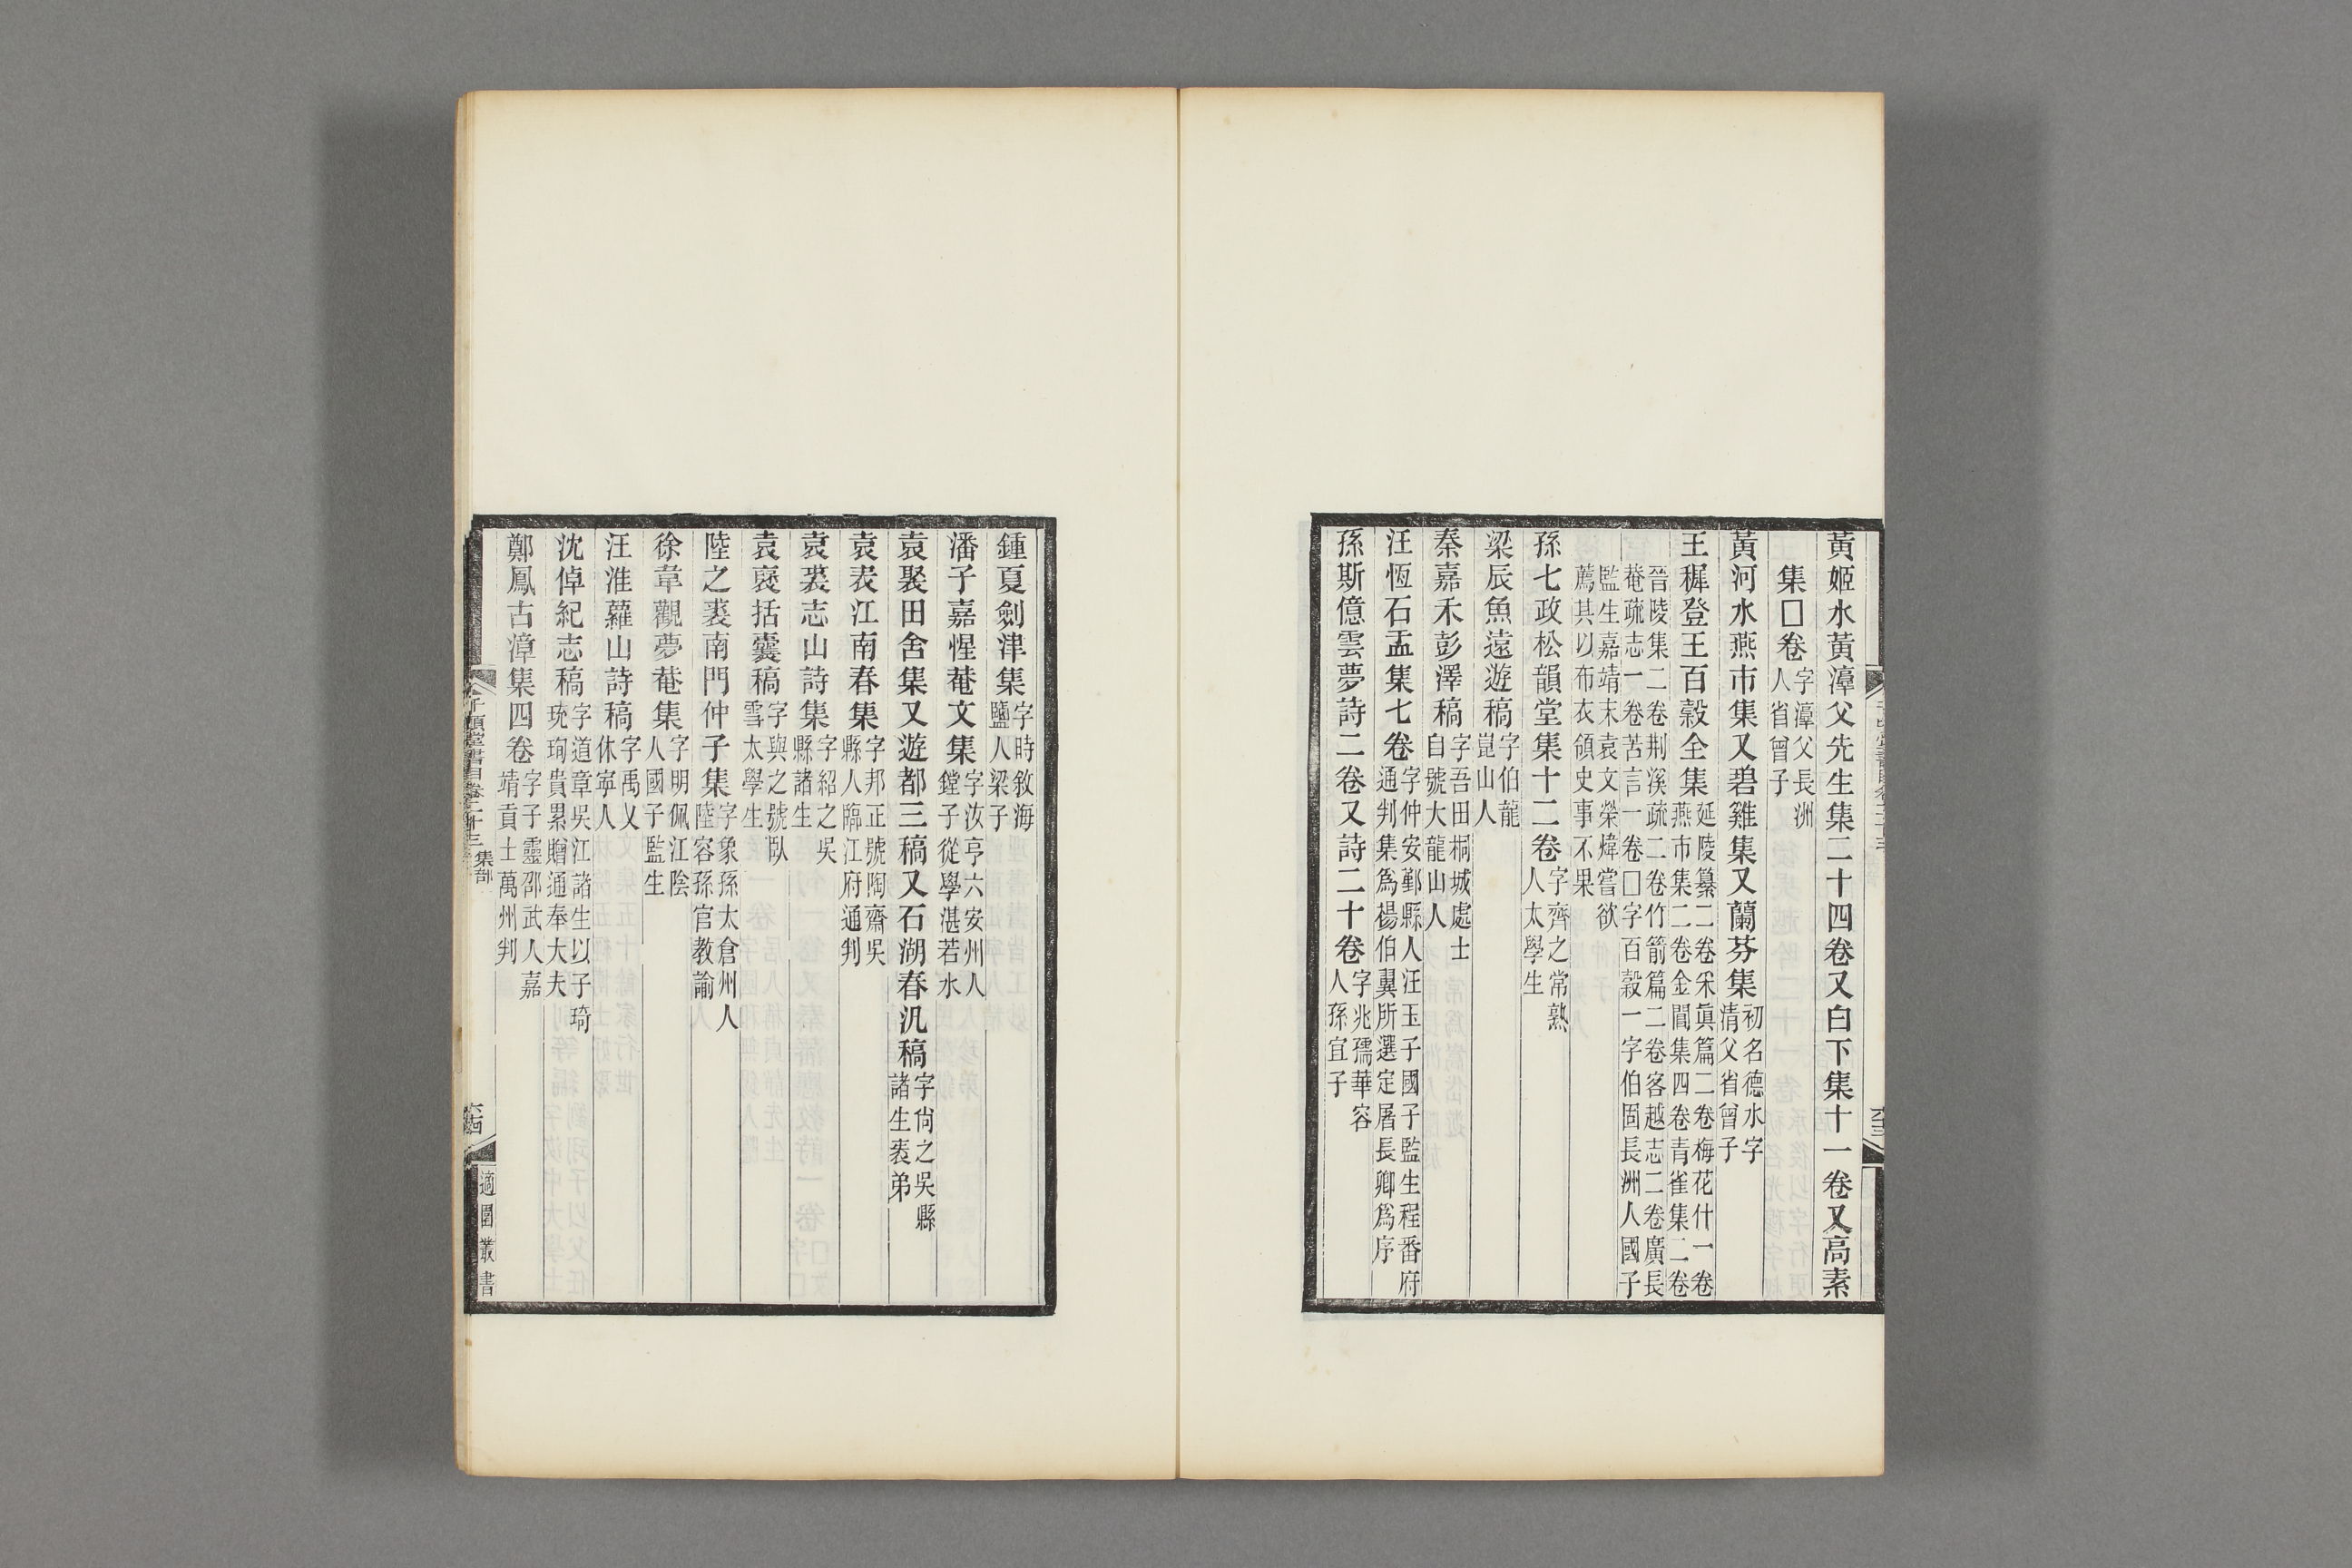 黃姬水黃漳父先生集二十四卷又白下集十一卷又高素
集□卷字漳父長洲人省曾子
黃河水燕市集又碧雞集又蘭芬集初名德水字清父省曾子
王穉登王百穀全集延陵纂二卷采眞篇二卷梅花什一卷燕市集二卷金閶集四卷青雀集二卷
晉陵集二卷荆溪疏二卷竹箭篇二卷客越志二卷廣長菴疏志一卷苦言一卷□字百穀一字伯固長洲人國子
監生嘉靖末袁文榮煒嘗欲薦其以布衣領史事不果
孫七政松韻堂集十二卷字齊之常熟人太學生
梁辰魚遠遊稿字伯龍崑山人
秦嘉禾彭澤稿字吾田桐城處士自號大龍山人
汪恆石盂集七卷字仲安鄞縣人汪玉子國子監生程番府通判集爲楊伯翼所選定屠長卿爲序
孫斯億雲夢詩二卷又詩二十卷字兆孺華容人孫宜子
鍾夏劍津集字時敘海鹽人梁子
潘子嘉惺菴文集字汝亨六安州人鏜子從學湛若水
袁褧田舍集又遊都三稿又石湖春汎稿字尙之吳縣諸生袠弟
袁表江南春集字邦正號陶齋吳縣人臨江府通判
袁裘志山詩集字紹之吳縣諸生
袁褒括囊稿字與之號臥雪太學生
陸之裘南門仲子集字象孫太倉州人陸容孫官教諭
徐韋觀夢菴集字明佩江陰人國子監生
汪淮蘿山詩稿字禹乂休寧人
沈倬紀志稿字道章吳江諸生以子琦珫珣貴累贈通奉大夫
鄭鳳古漳集四卷字子靈邵武人嘉靖貢士萬州判
千頃堂書目卷二十三 集部
六十四
適園叢書